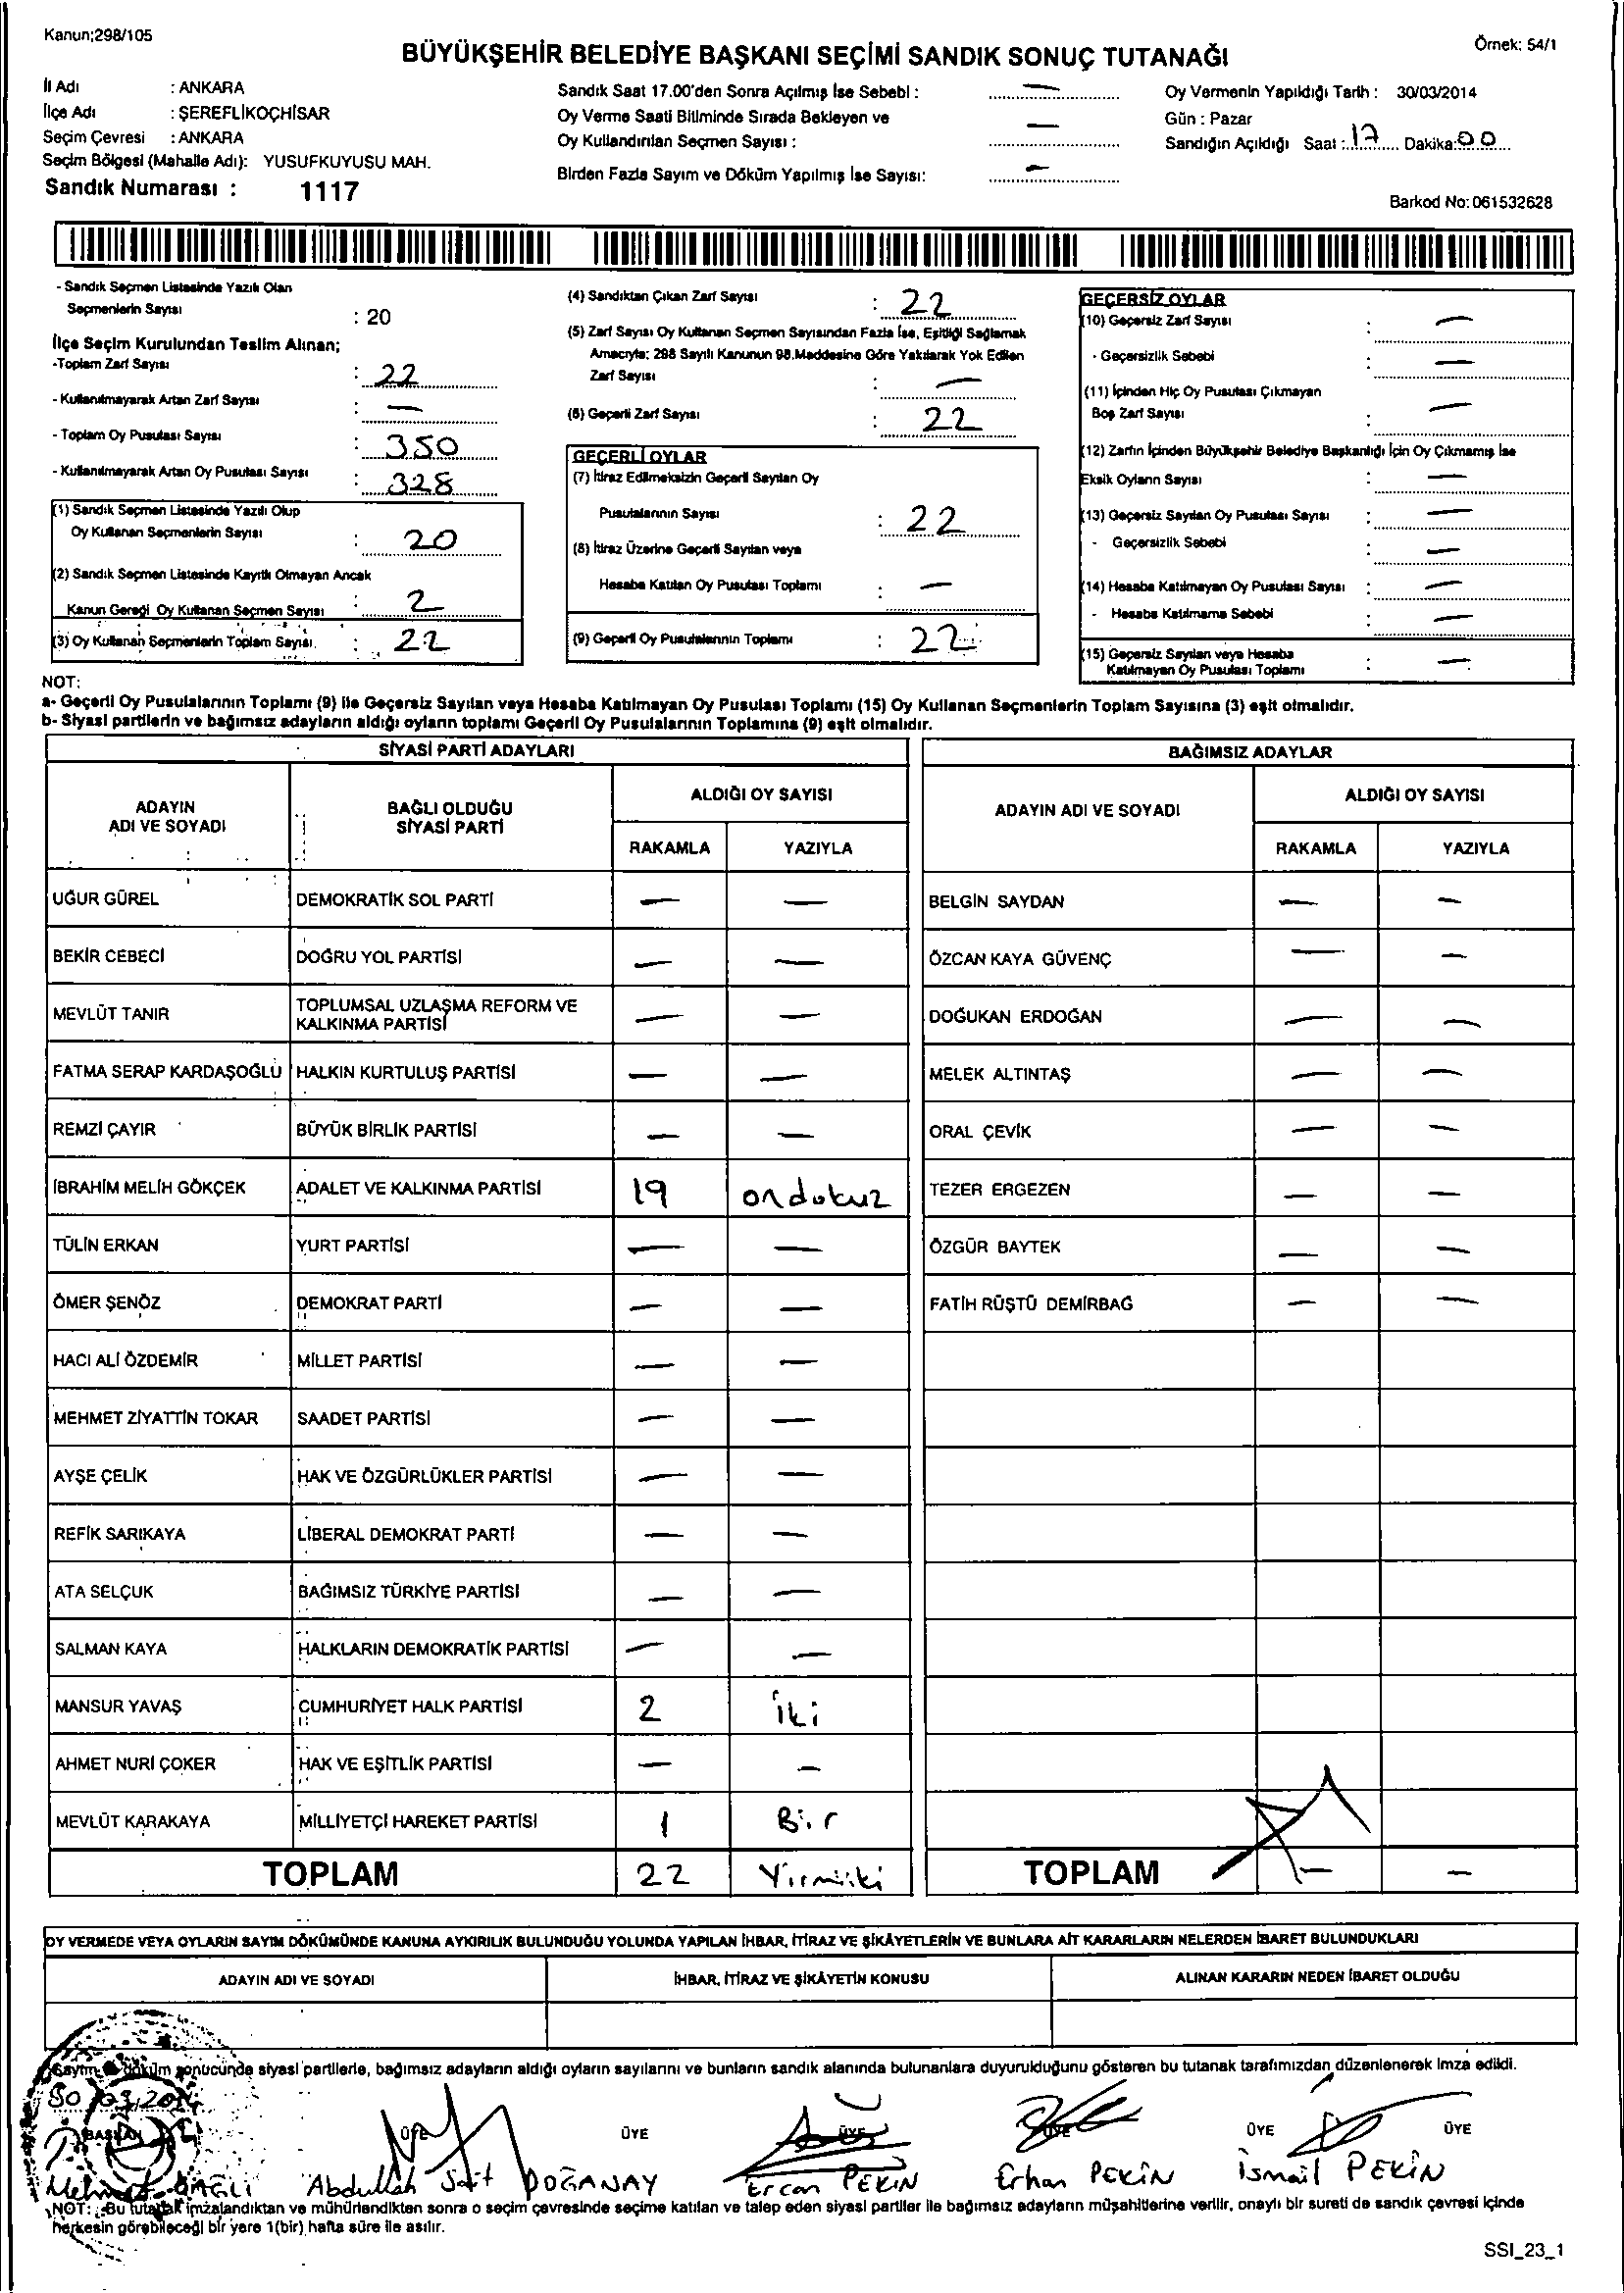 Kanun;298/105
Örnek: 54/1
BÜYÜKŞEHİR BELEDİYE BAŞKANI SEÇİMİ SANDIK SONUÇ TUTANAĞI
İl Adı : ANKARA
İlçe Adı : ŞEREFLİKOÇHİSAR
Seçim Çevresi : ANKARA
Seçim Bölgesi (Mahalle Adı): YUSUFKUYUSU MAH.
Sandık Numarası : 1117
Sandık Saat 17.00'den Sonra Açılmış İse Sebebi : —
Oy Verme Saati Bitiminde Sırada Bekleyen ve
Oy Kullandırılan Seçmen Sayısı : —
Birden Fazla Sayım ve Döküm Yapılmış İse Sayısı: —
Oy Vermenin Yapıldığı Tarih : 30/03/2014
Gün : Pazar
Sandığın Açıldığı Saat : 17 Dakika: 00
Barkod No: 061532628
- Sandık Seçmen Listesinde Yazılı Olan
Seçmenlerin Sayısı : 20
İlçe Seçim Kurulundan Teslim Alınan;
-Toplam Zarf Sayısı : 22
- Kullanılmayarak Artan Zarf Sayısı : —
- Toplam Oy Pusulası Sayısı : 350
- Kullanılmayarak Artan Oy Pusulası Sayısı : 328
(1) Sandık Seçmen Listesinde Yazılı Olup
Oy Kullanan Seçmenlerin Sayısı : 20
(2) Sandık Seçmen Listesinde Kayıtlı Olmayan Ancak
Kanun Gereği Oy Kullanan Seçmen Sayısı : 2
(3) Oy Kullanan Seçmenlerin Toplam Sayısı : 22
(4) Sandıktan Çıkan Zarf Sayısı : 22
(5) Zarf Sayısı Oy Kullanan Seçmen Sayısından Fazla İse, Eşitliği Sağlamak
Amacıyla; 298 Sayılı Kanunun 98.Maddesine Göre Yakılarak Yok Edilen
Zarf Sayısı : —
(6) Geçerli Zarf Sayısı : 22
GEÇERLİ OYLAR
(7) İtiraz Edilmeksizin Geçerli Sayılan Oy
Pusulalarının Sayısı : 22
(8) İtiraz Üzerine Geçerli Sayılan veya
Hesaba Katılan Oy Pusulası Toplamı : —
(9) Geçerli Oy Pusulalarının Toplamı : 22
GEÇERSİZ OYLAR
(10) Geçersiz Zarf Sayısı : —
- Geçersizlik Sebebi : —
(11) İçinden Hiç Oy Pusulası Çıkmayan
Boş Zarf Sayısı : —
(12) Zarfın İçinden Büyükşehir Belediye Başkanlığı İçin Oy Çıkmamış İse
Eksik Oyların Sayısı : —
(13) Geçersiz Sayılan Oy Pusulası Sayısı : —
- Geçersizlik Sebebi : —
(14) Hesaba Katılmayan Oy Pusulası Sayısı : —
- Hesaba Katılmama Sebebi : —
(15) Geçersiz Sayılan veya Hesaba
Katılmayan Oy Pusulası Toplamı : —
NOT:
a- Geçerli Oy Pusulalarının Toplamı (9) ile Geçersiz Sayılan veya Hesaba Katılmayan Oy Pusulası Toplamı (15) Oy Kullanan Seçmenlerin Toplam Sayısına (3) eşit olmalıdır.
b- Siyasi partilerin ve bağımsız adayların aldığı oyların toplamı Geçerli Oy Pusulalarının Toplamına (9) eşit olmalıdır.
SİYASİ PARTİ ADAYLARI
ADAYIN
ADI VE SOYADI
BAĞLI OLDUĞU
SİYASİ PARTİ
ALDIĞI OY SAYISI
RAKAMLA YAZIYLA
UĞUR GÜREL DEMOKRATİK SOL PARTİ — —
BEKİR CEBECİ DOĞRU YOL PARTİSİ — —
MEVLÜT TANIR TOPLUMSAL UZLAŞMA REFORM VE
KALKINMA PARTİSİ — —
FATMA SERAP KARDAŞOĞLU HALKIN KURTULUŞ PARTİSİ — —
REMZİ ÇAYIR BÜYÜK BİRLİK PARTİSİ — —
İBRAHİM MELİH GÖKÇEK ADALET VE KALKINMA PARTİSİ 19 ondokuz
TÜLİN ERKAN YURT PARTİSİ — —
ÖMER ŞENÖZ DEMOKRAT PARTİ — —
HACI ALİ ÖZDEMİR MİLLET PARTİSİ — —
MEHMET ZİYATTİN TOKAR SAADET PARTİSİ — —
AYŞE ÇELİK HAK VE ÖZGÜRLÜKLER PARTİSİ — —
REFİK SARIKAYA LİBERAL DEMOKRAT PARTİ — —
ATA SELÇUK BAĞIMSIZ TÜRKİYE PARTİSİ — —
SALMAN KAYA HALKLARIN DEMOKRATİK PARTİSİ — —
MANSUR YAVAŞ CUMHURİYET HALK PARTİSİ 2 iki
AHMET NURİ ÇOKER HAK VE EŞİTLİK PARTİSİ — —
MEVLÜT KARAKAYA MİLLİYETÇİ HAREKET PARTİSİ 1 Bir
TOPLAM 22 Yirmiiki
BAĞIMSIZ ADAYLAR
ADAYIN ADI VE SOYADI
ALDIĞI OY SAYISI
RAKAMLA YAZIYLA
BELGİN SAYDAN — —
ÖZCAN KAYA GÜVENÇ — —
DOĞUKAN ERDOĞAN — —
MELEK ALTINTAŞ — —
ORAL ÇEVİK — —
TEZER ERGEZEN — —
ÖZGÜR BAYTEK — —
FATİH RÜŞTÜ DEMİRBAĞ — —
TOPLAM — —
OY VERMEDE VEYA OYLARIN SAYIM DÖKÜMÜNDE KANUNA AYKIRILIK BULUNDUĞU YOLUNDA YAPILAN İHBAR, İTİRAZ VE ŞİKÂYETLERİN VE BUNLARA AİT KARARLARIN NELERDEN İBARET BULUNDUKLARI
ADAYIN ADI VE SOYADI
İHBAR, İTİRAZ VE ŞİKÂYETİN KONUSU
ALINAN KARARIN NEDEN İBARET OLDUĞU
Sayım döküm sonucunda siyasi partilerle, bağımsız adayların aldığı oyların sayılarını ve bunların sandık alanında bulunanlara duyurulduğunu gösteren bu tutanak tarafımızdan düzenlenerek imza edildi.
30/03/2014
BAŞKAN ÜYE ÜYE ÜYE ÜYE ÜYE ÜYE
Mehmet Abdullah Sait DOĞANAY Ercan PEKİN Erhan PEKİN İsmail PEKİN
NOT: Bu tutanak imzalandıktan ve mühürlendikten sonra o seçim çevresinde seçime katılan ve talep eden siyasi partiler ile bağımsız adayların müşahitlerine verilir, onaylı bir sureti de sandık çevresi içinde
herkesin görebileceği bir yere 1(bir) hafta süre ile asılır.
SSI_23_1